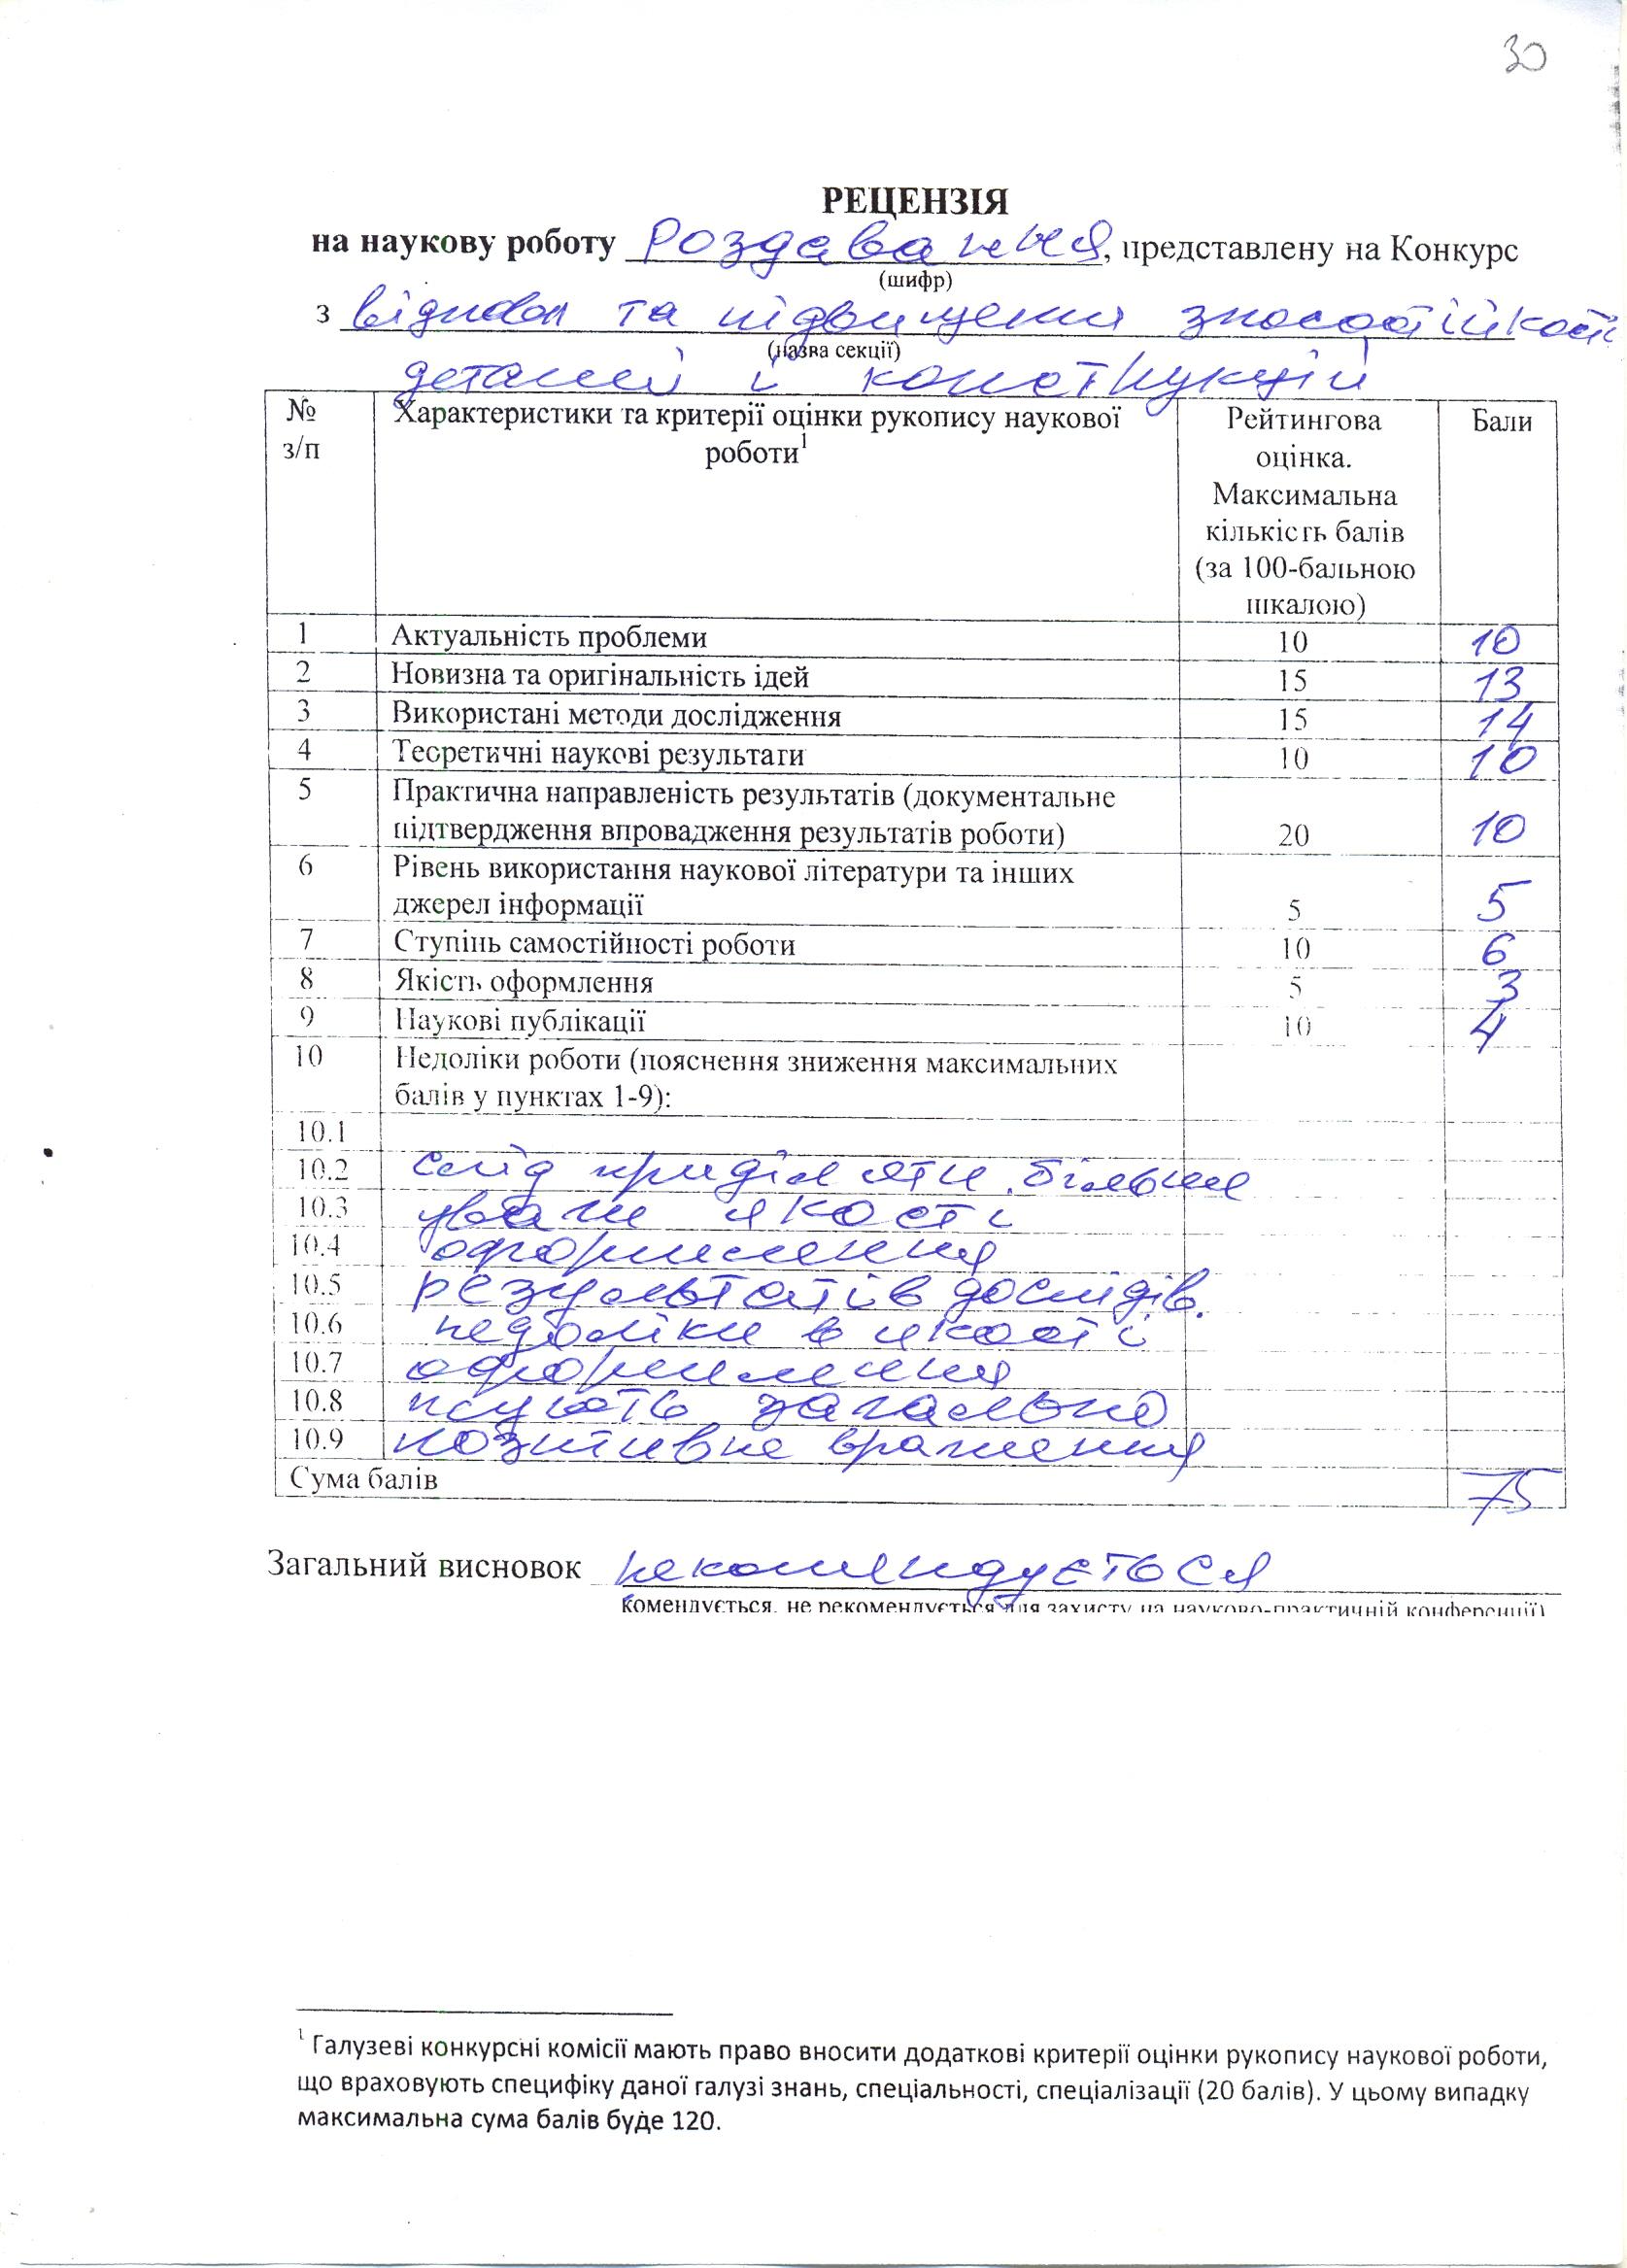 30
РЕЦЕНЗІЯ
на наукову роботу Роздавання, представлену на Конкурс
(шифр)
з віднов та підвищення зносостійкості
(назва секції)
деталей і конструкцій
№ з/п Характеристики та критерії оцінки рукопису наукової роботи¹ Рейтингова оцінка. Максимальна кількість балів (за 100-бальною шкалою) Бали
1 Актуальність проблеми 10 10
2 Новизна та оригінальність ідей 15 13
3 Використані методи дослідження 15 14
4 Теоретичні наукові результати 10 10
5 Практична направленість результатів (документальне
підтвердження впровадження результатів роботи) 20 10
6 Рівень використання наукової літератури та інших
джерел інформації 5 5
7 Ступінь самостійності роботи 10 6
8 Якість оформлення 5 3
9 Наукові публікації 10 4
10 Недоліки роботи (пояснення зниження максимальних
балів у пунктах 1-9):
10.1
10.2 слід приділяти більше
10.3 уваги якості
10.4 оформлення
10.5 результатів дослідів.
10.6 недоліки в якості
10.7 оформлення
10.8 псують загальне
10.9 позитивне враження
Сума балів 75
Загальний висновок рекомендується
комендується, не рекомендується для захисту на науково-практичній конференції)
¹ Галузеві конкурсні комісії мають право вносити додаткові критерії оцінки рукопису наукової роботи,
що враховують специфіку даної галузі знань, спеціальності, спеціалізації (20 балів). У цьому випадку
максимальна сума балів буде 120.